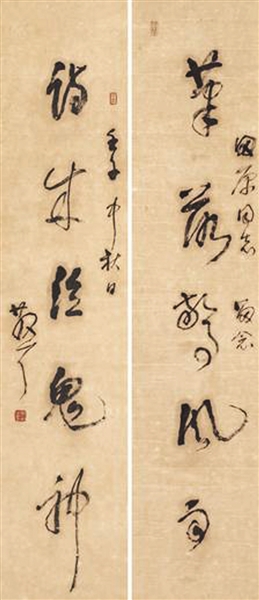 田原同志留念
筆落驚風雨
詩成泣鬼神
壬子中秋日
散之